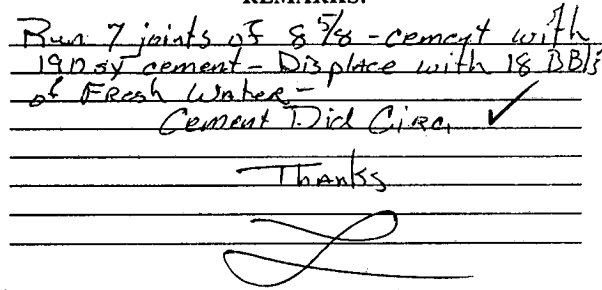 REMARKS:
Run 7 joints of 8 5/8 - cement with
190 sx cement - Displace with 18 BBls
of Fresh Water -
Cement Did Circ. ✓
Thanks